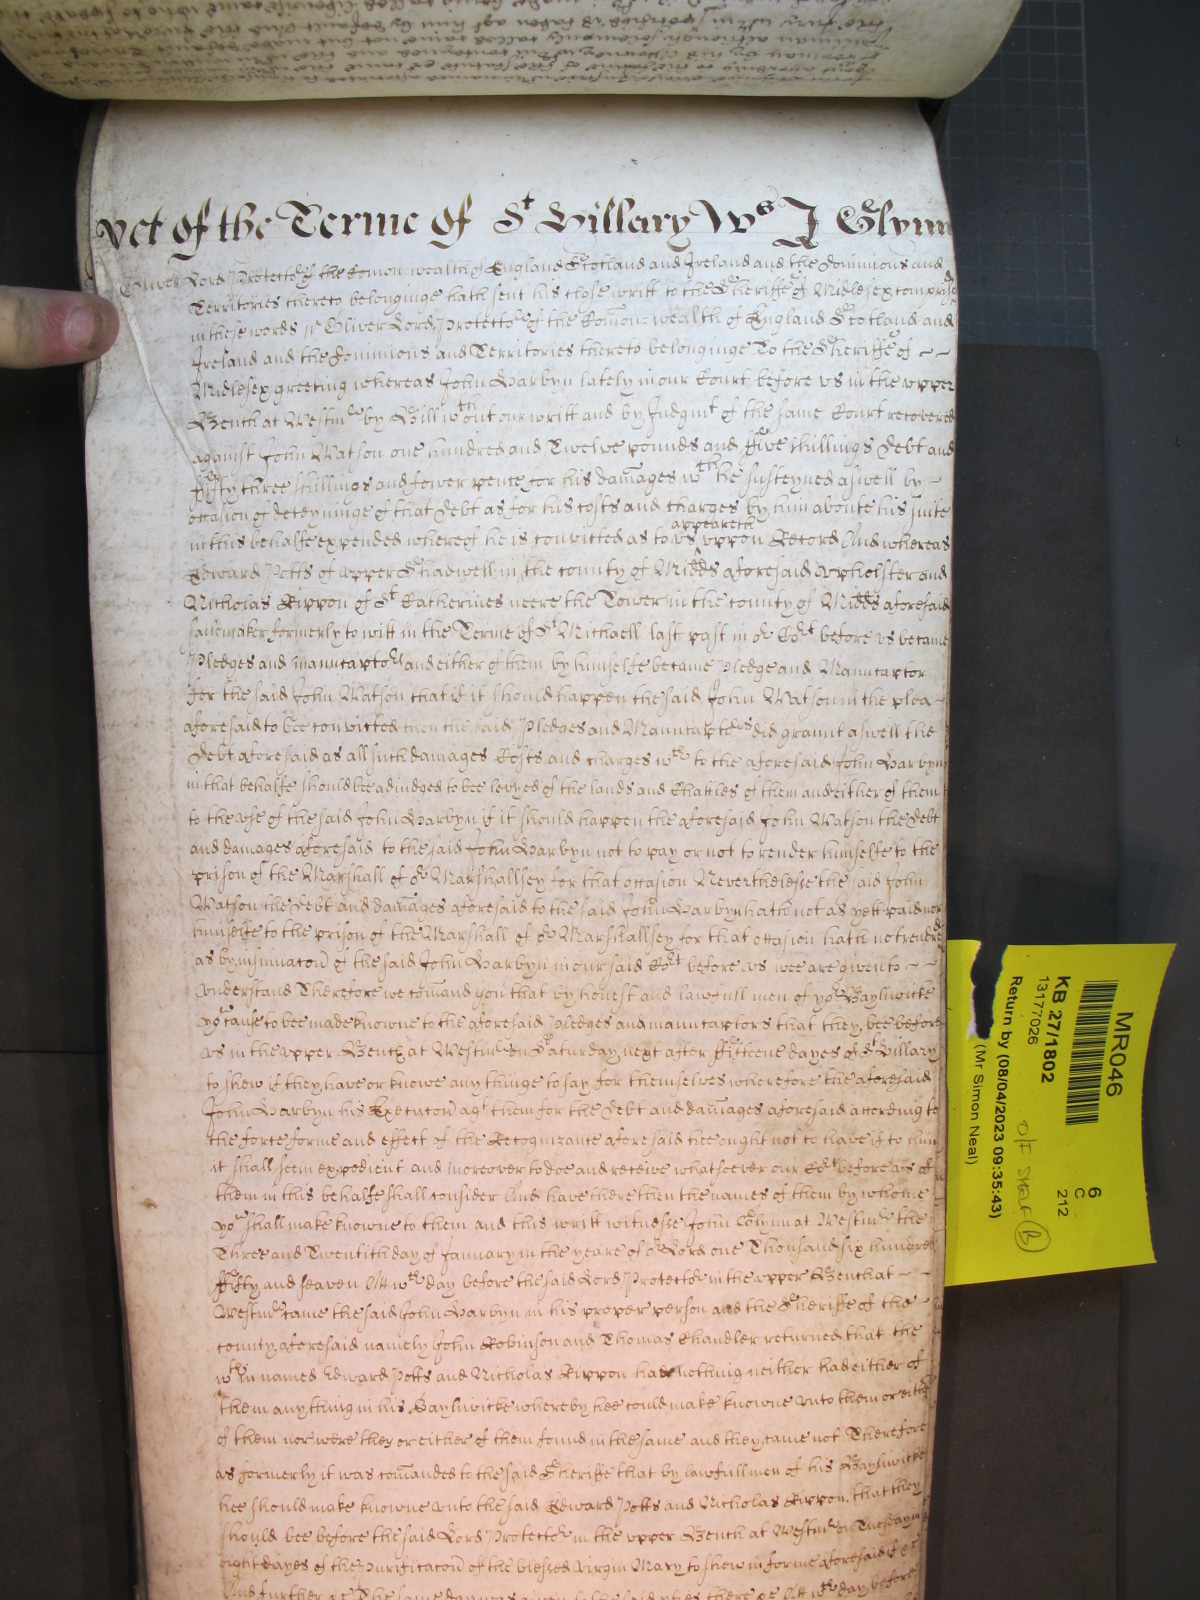 yet of the Terme of St Hillary Ws J Glynn
Oliver Lord Protector of the Comon wealth of England Scotland and Ireland and the Dominions and
Territories thereto belonginge hath sent his close writt to the Sheriffe of Midlesex
in these words Oliver Lord Protector of the Comon=wealth of England Scotland and
Ireland and the Dominions and Territories thereto belonginge To the Sheriffe of
Midlesex greeting whereas John Harbyn lately in our Court before us in the upper
Bench at Westmr by Bill wthout our writt and by Judgmt of the same Court recovered
against John Watson one hundred and Twelve pounds and ffive shillings Debt and
fifty three shillings and fower pence for his damages wch he susteyned aswell by
occasion of deteyninge of that Debt as for his costs and charges by him aboute his suite
in this behalfe expended whereof he is convicted as to us appeareth uppon Record And whereas
Edward Potts of upper Shadwell in the county of Midds aforesaid upholster and
Nicholas Rippon of St Katherines neere the Tower in the county of Midds aforesaid
sailemaker formerly to witt in the Terme of St Michaell last past in or Cort before us became
Pledges and manucaptors and either of them by himselfe became Pledge and Manucaptor
for the said John Watson that if it should happen the said John Watson in the plea
aforesaid to bee convicted then the said Pledges and Manucaptors did graunt aswell the
Debt aforesaid as all such damages Costs and charges wch to the aforesaid John Harbyn
in that behalfe should bee adiudged to bee levyed of the lands and Chattles of them and either of them
to the use of the said John Harbyn if it should happen the aforesaid John Watson the Debt
and damages aforesaid to the said John Harbyn not to pay or not to render himselfe to the
prison of the Marshall of or Marshallsey for that occasion Neverthelesse the said John
Watson the Debt and damages aforesaid to the said John Harbyn hath not as yett paid nor
himselfe to the prison of the Marshall of or Marshallsey for that occasion hath not rendred
as by insinuacon of the said John Harbyn in our said Cort before us wee are given to
understand Therefore we comand you that by honest and lawfull men of yor Baylywicke
yor cause to bee made knowne to the aforesaid Pledges and manucaptors that they bee before
us in the upper Bench at Westmr on Saturday next after ffifteene dayes of St Hillary
to shew if they have or knowe any thinge to say for themselves wherefore the aforesaid
John Harbyn his Execucon agt them for the Debt and damages aforesaid according to
the force forme and effect of the Recognizance aforesaid hee ought not to have if to him
it shall seem expedient and moreover to doe and receive whatsoever our Cort before us of
them in this behalfe shall consider And have there then the names of them by whome
yor shall make knowne to them and this writt witnesse John Glynn at Westmr the
Three and Twentith day of January in the yeare of or Lord one Thousand six hundred
ffifty and seaven Att wch day before the said Lord Protector in the upper Bench at
Westmr came the said John Harbyn in his proper person and the Sheriffe of the
county aforesaid namely John Robinson and Thomas Chandler returned that the
wthin named Edward Potts and Nicholas Rippon had nothing neither had either of
them any thing in his Baylywicke whereby hee could make knowne unto them or either
of them nor were they or either of them found in the same and they came not Therefore
as formerly it was comanded to the said Sheriffe that by lawfull men of his Baylywicke
hee should make knowne unto the said Edward Potts and Nicholas Rippon that they
should bee before the said Lord Protector in the upper Bench at Westmr on Tuesday in
eight dayes of the Purificacon of the blessed Virgin Mary to shew in forme aforesaid if &c
And further &c The same day
MR046
KB 27/1802
13177026
Return by (08/04/2023 09:35:43)
(Mr Simon Neal)
6
C
212
O/F STAFF (B)